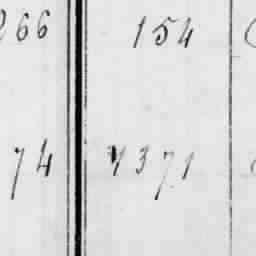 266 154
74 4371